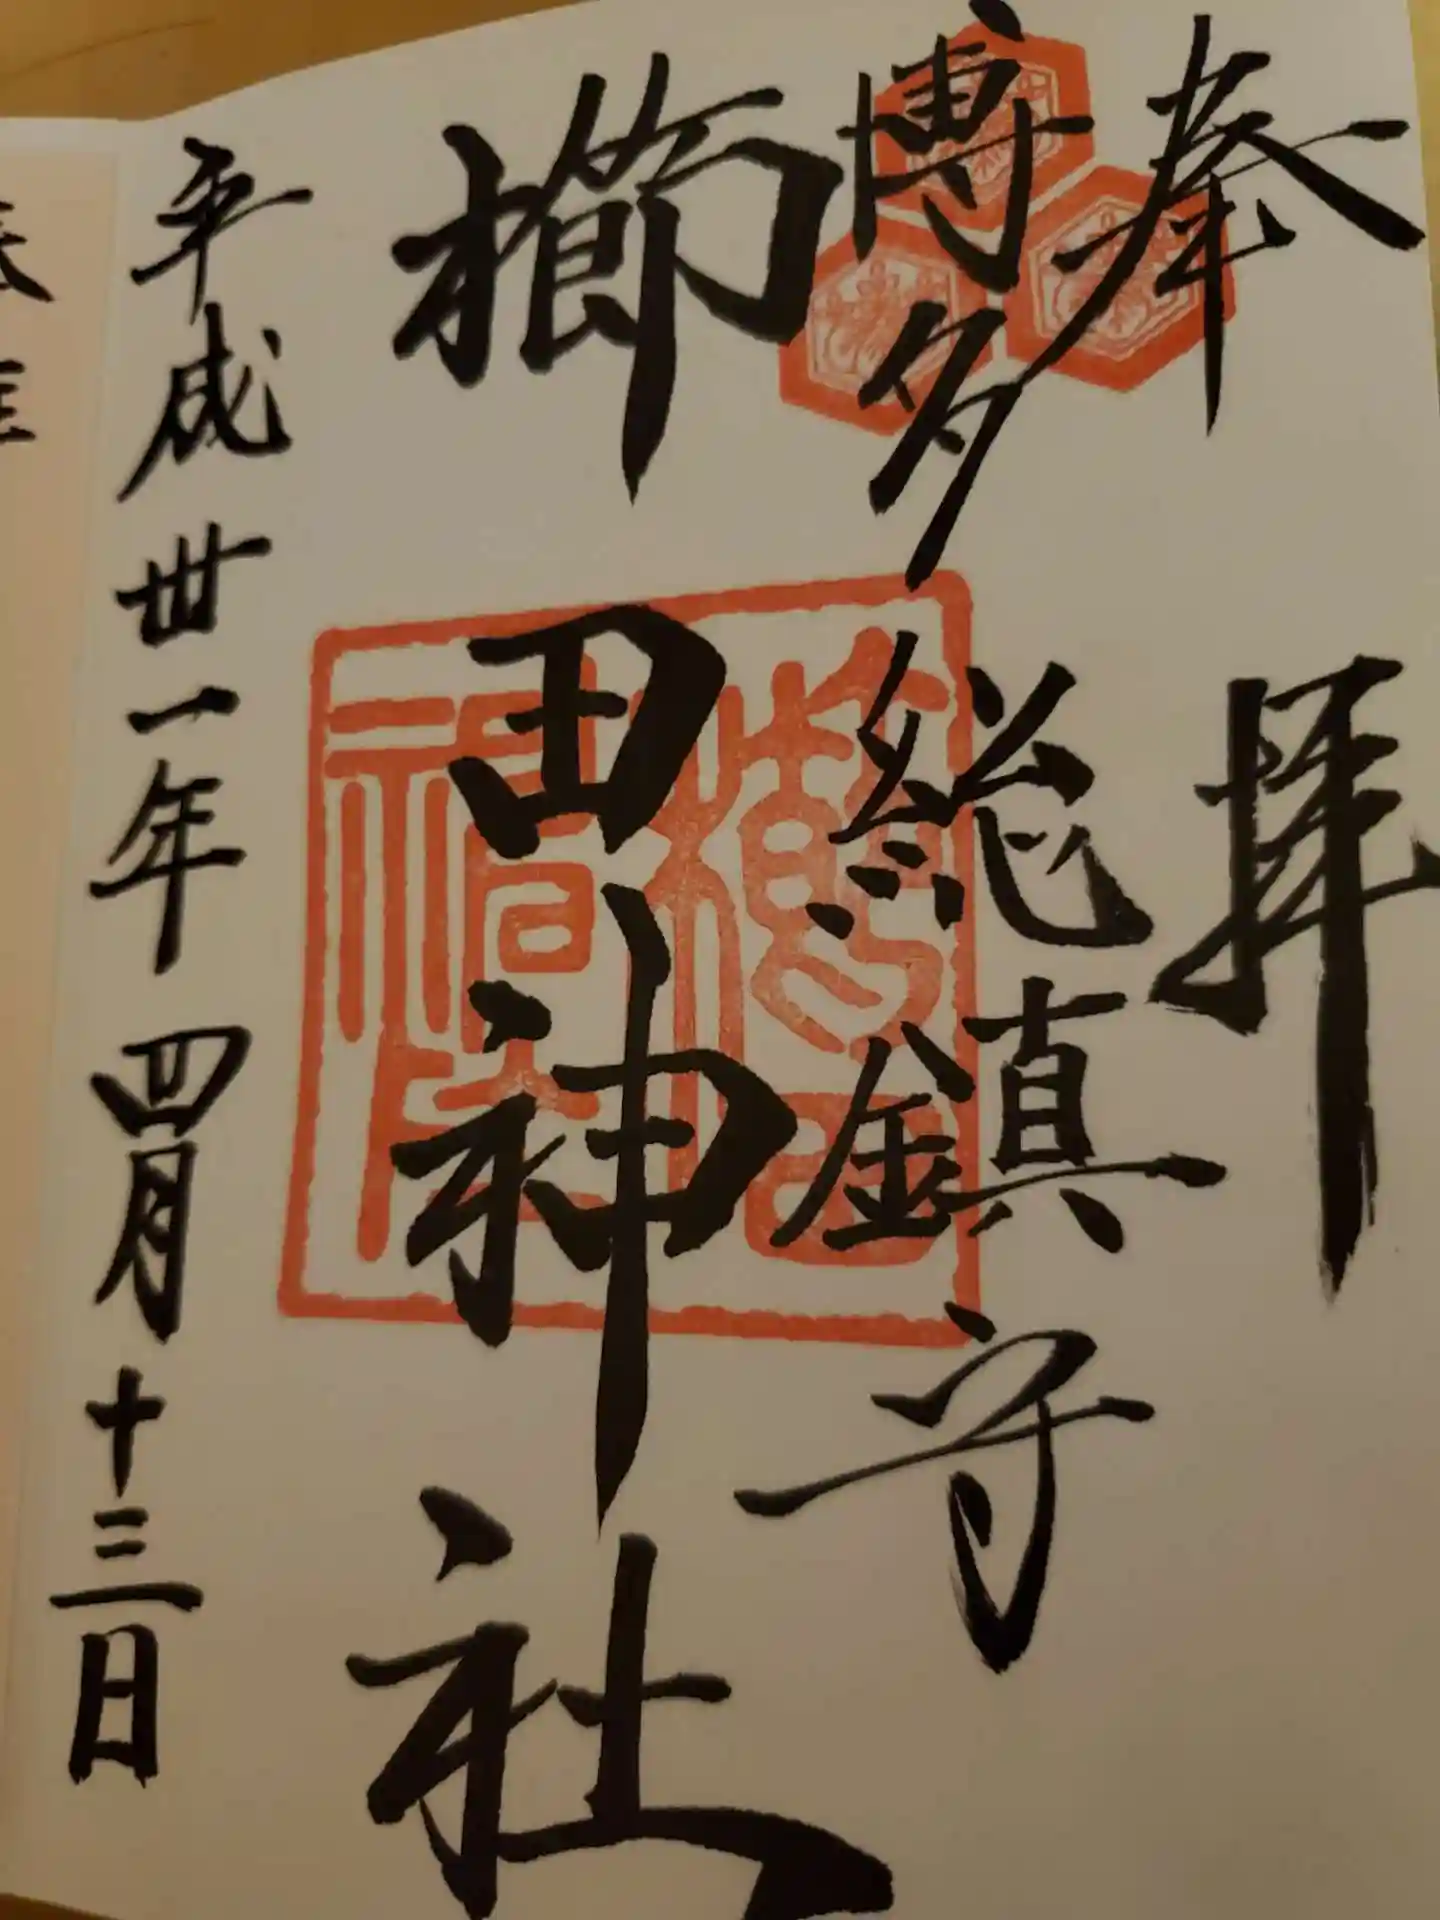 奉拝
博多総鎮守
櫛田神社
平成丗一年四月十三日